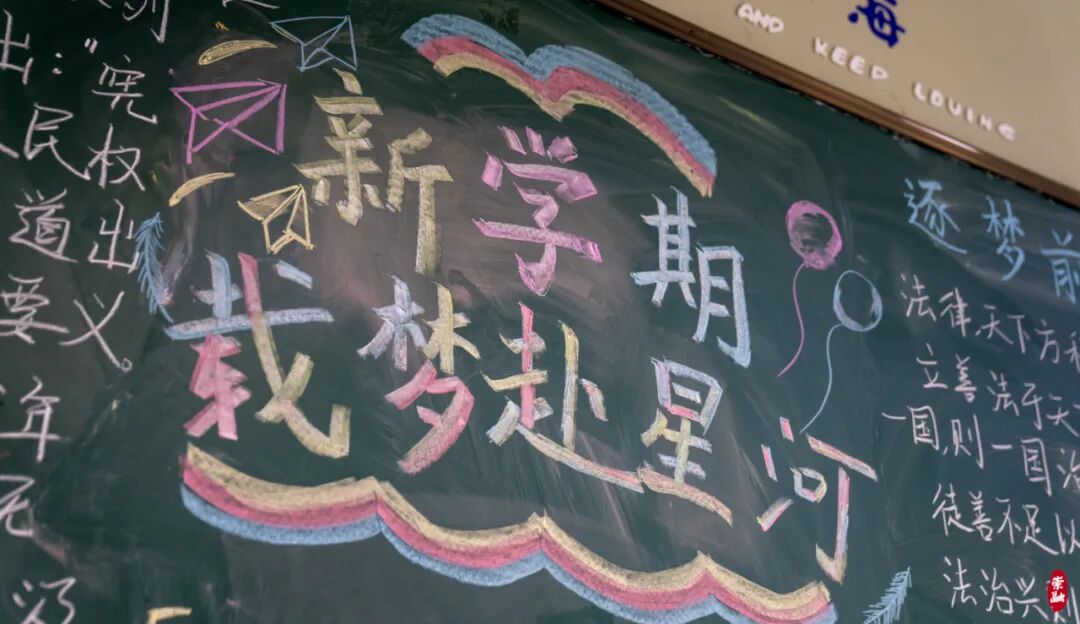 海
AND KEEP LOUING
出：“宪
民权
道出
要义。
年
无
新学期
载梦赴星河
逐梦前
法律,天下方
立善法于天下
一国,则一国治
徒善不足以
法治兴则
崇融